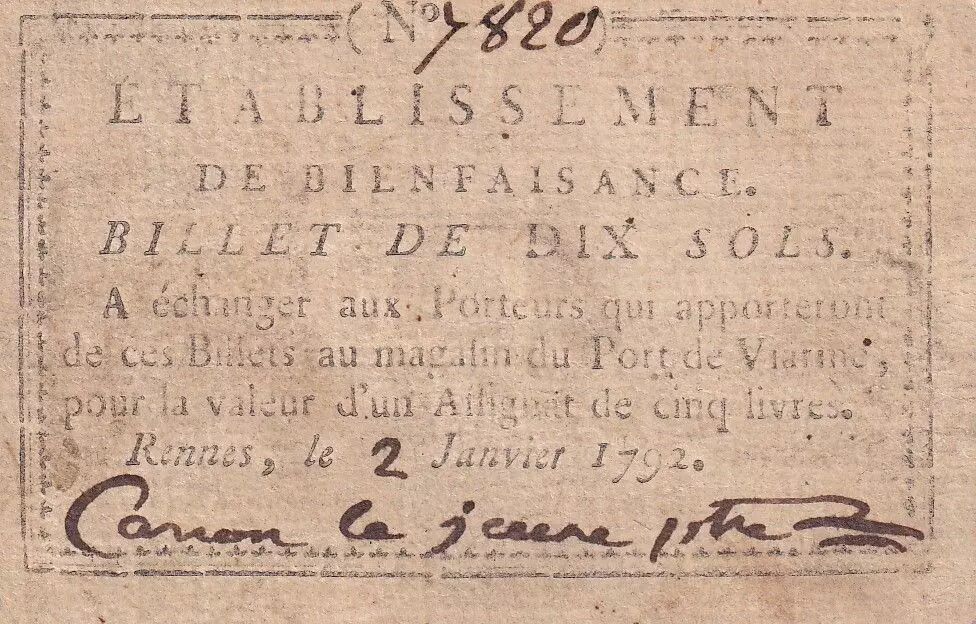 (No 7820)
ÉTABLISSEMENT
DE BIENFAISANCE.
BILLET DE DIX SOLS.
A échanger aux Porteurs qui apporteront
de ces Billets au magaſin du Port de Viarme,
pour la valeur d'un Aſſignat de cinq livres.
Rennes, le 2 Janvier 1792.
le jeune